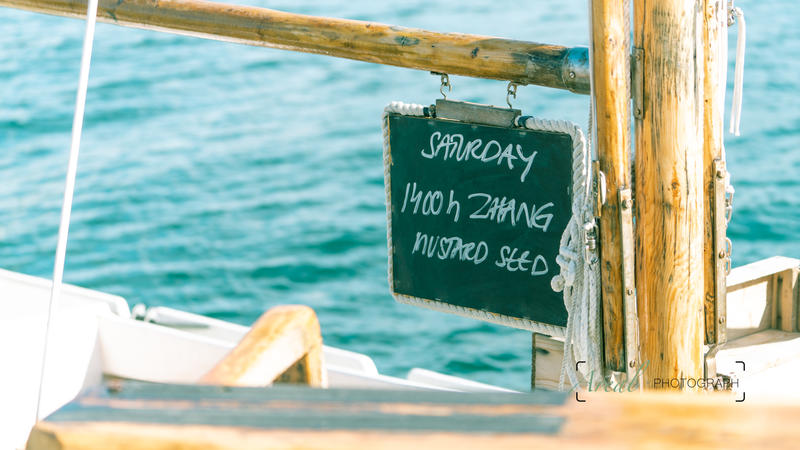 SATURDAY
1400 h ZHANG
MUSTARD SEED
PHOTOGRAPH